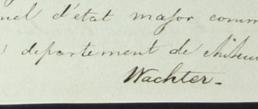 nel d'état major comm
département de
Wachter.